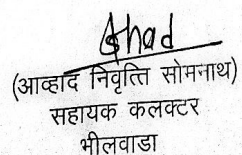 (आव्हाद निवृत्ति सोमनाथ)
सहायक कलक्टर
भीलवाडा